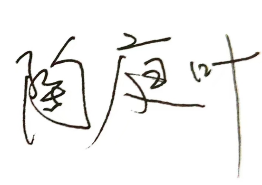 陶庭叶